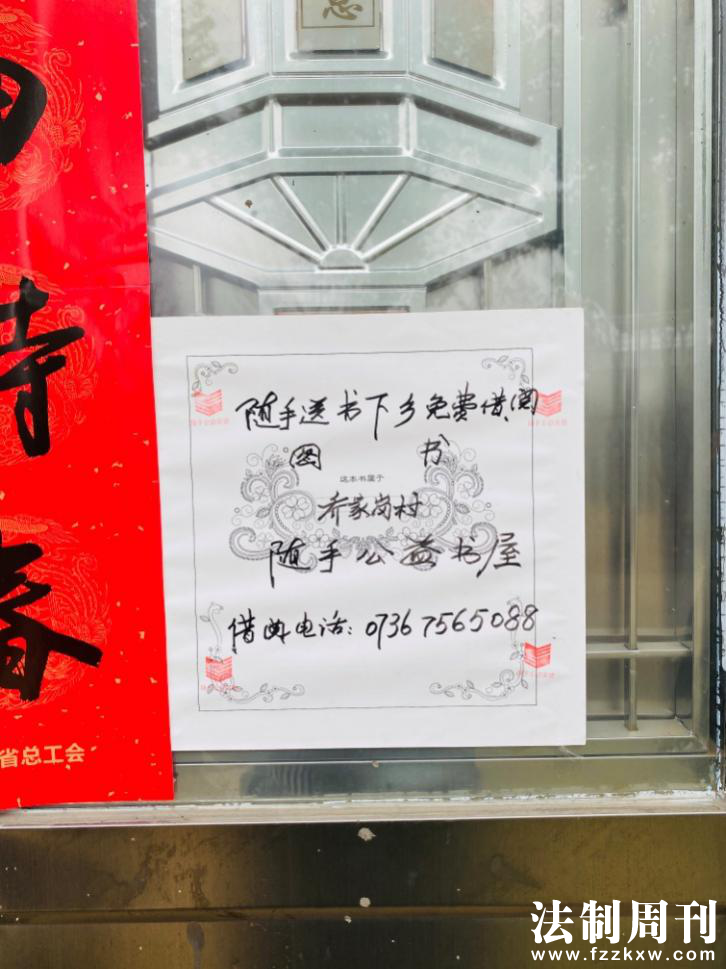 忠
时
春
省总工会
随手送书下乡免费借阅
图 书
这本书属于
乔家岗村
随手公益书屋
借阅电话: 0736 7565088
法制周刊
www.fzzkxw.com